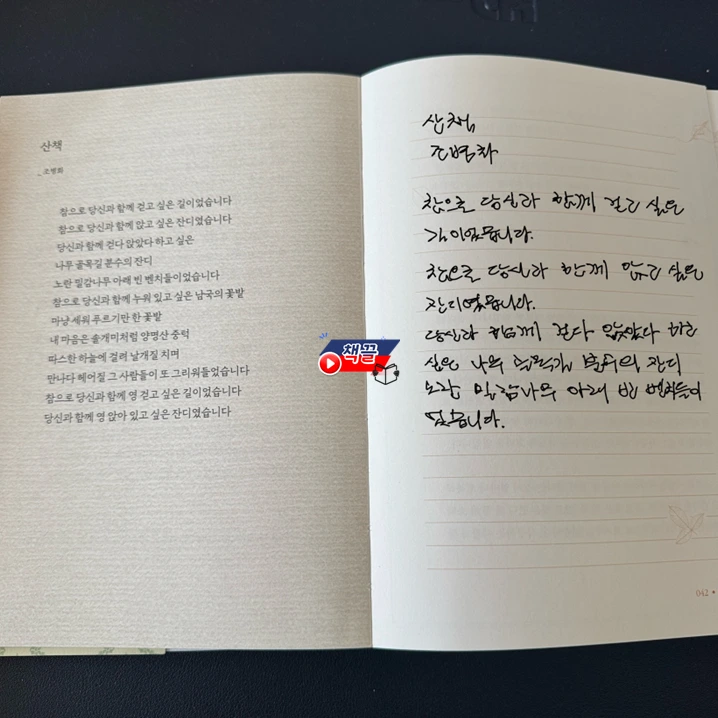 산책
_ 조병화
참으로 당신과 함께 걷고 싶은 길이었습니다
참으로 당신과 함께 앉고 싶은 잔디였습니다
당신과 함께 걷다 앉았다 하고 싶은
나무 골목길 분수의 잔디
노란 밀감나무 아래 빈 벤치들이었습니다
참으로 당신과 함께 누워 있고 싶은 남국의 꽃밭
마냥 세워 푸르기만 한 꽃밭
내 마음은 솔개미처럼 양명산 중턱
따스한 하늘에 걸려 날개질 치며
만나다 헤어질 그 사람들이 또 그리워들었습니다
참으로 당신과 함께 영 걷고 싶은 길이었습니다
당신과 함께 영 앉아 있고 싶은 잔디였습니다
책끌
산책,
조병화
참으로 당신과 함께 걷고 싶은
길이었습니다.
참으로 당신과 함께 앉고 싶은
잔디였습니다.
당신과 함께 걷다 앉았다 하고
싶은 나무 골목길 분수의 잔디
노란 밀감나무 아래 빈 벤치들이
었습니다.
042